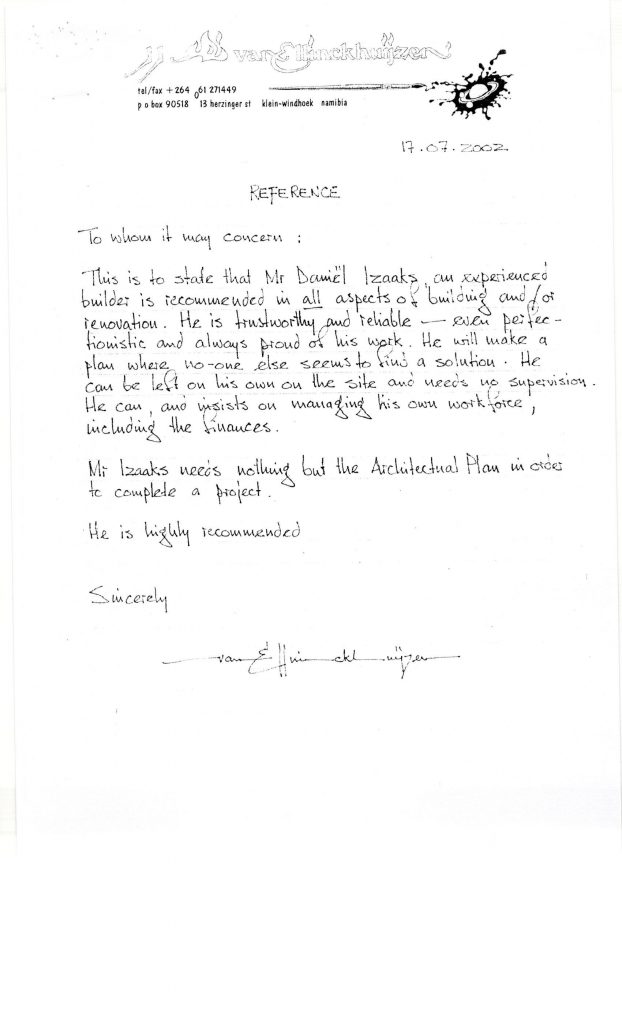 van Ellinckhuijzen
tel/fax + 264 61 271449
p o box 90518 13 herzinger st klein-windhoek namibia
17.07.2002
REFERENCE
To whom it may concern :
This is to state that Mr Daniël Izaaks, an experienced
builder is recommended in all aspects of building and/or
renovation. He is trustworthy and reliable — even perfec-
tionistic and always proud of his work. He will make a
plan where no-one else seems to find a solution. He
can be left on his own on the site and needs no supervision.
He can, and insists on managing his own workforce,
including the finances.
Mr Izaaks needs nothing but the Architectual Plan in order
to complete a project.
He is highly recommended
Sincerely
van Ellinckhuijzen